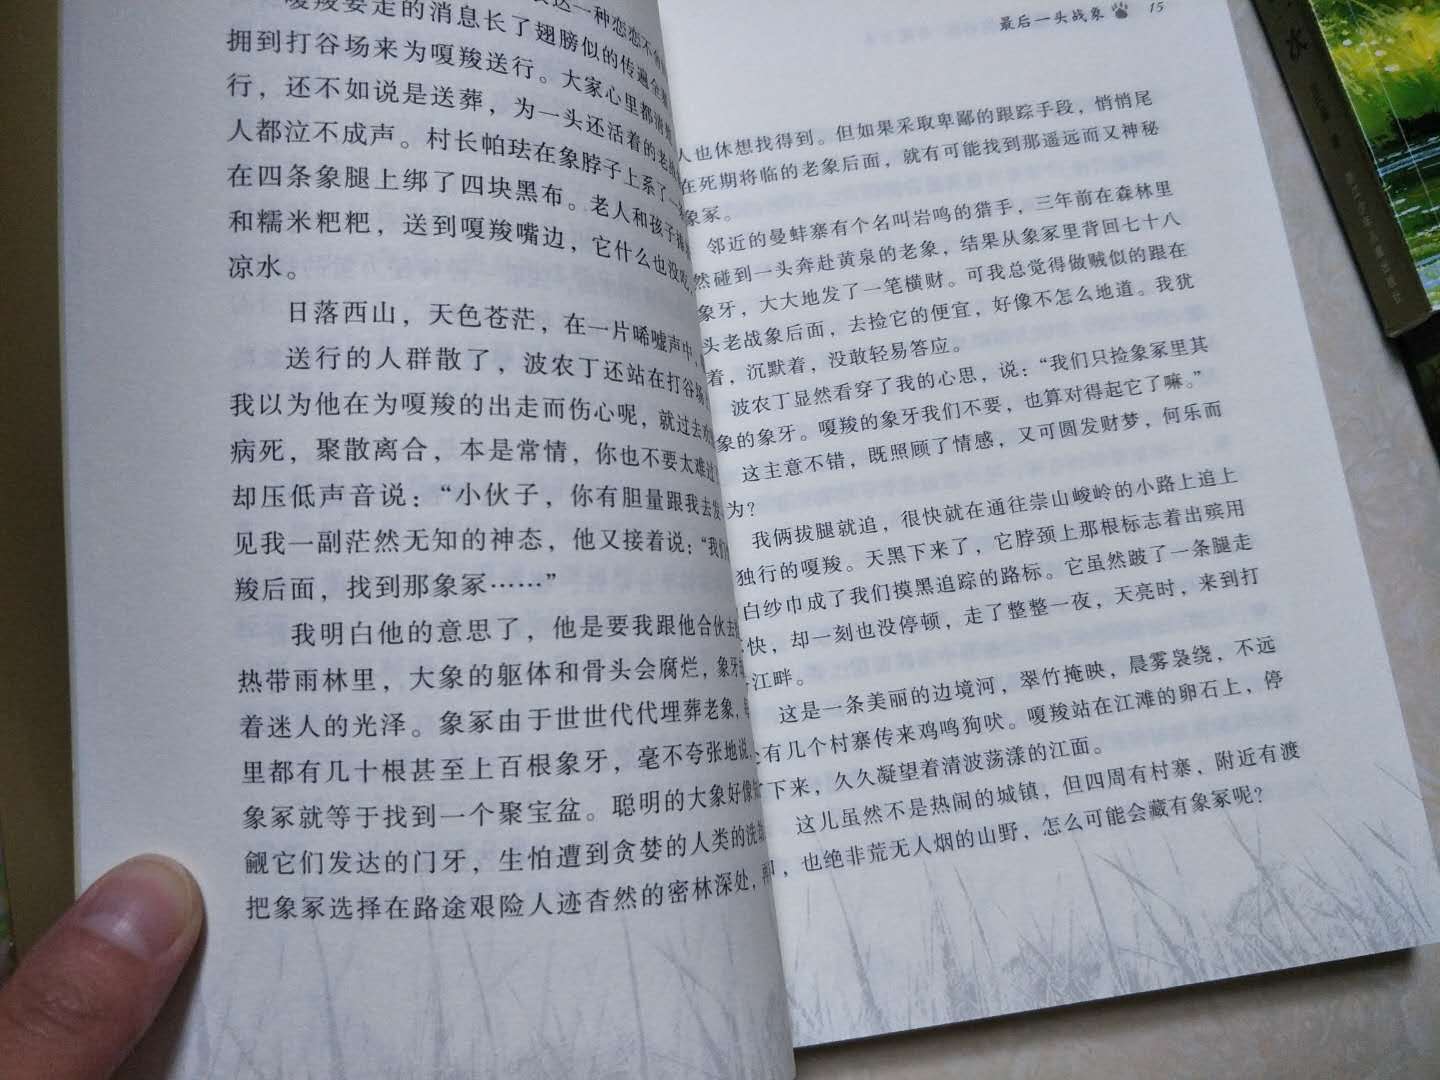 嘎羧要走的消息长了翅膀似的传遍全
拥到打谷场来为嘎羧送行。大家心里都清
行，还不如说是送葬，为一头还活着的老
人都泣不成声。村长帕珐在象脖子上系了一
在四条象腿上绑了四块黑布。老人和孩子捧
和糯米粑粑，送到嘎羧嘴边，它什么也没吃，
凉水。
日落西山，天色苍茫，在一片唏嘘声中，
送行的人群散了，波农丁还站在打谷场
我以为他在为嘎羧的出走而伤心呢，就过去劝
病死，聚散离合，本是常情，你也不要太难过
却压低声音说：“小伙子，你有胆量跟我去发
见我一副茫然无知的神态，他又接着说：“我们
羧后面，找到那象冢……”
我明白他的意思了，他是要我跟他合伙去
热带雨林里，大象的躯体和骨头会腐烂，象牙
着迷人的光泽。象冢由于世世代代埋葬老象，
里都有几十根甚至上百根象牙，毫不夸张地说，
象冢就等于找到一个聚宝盆。聪明的大象好像知
觎它们发达的门牙，生怕遭到贪婪的人类的洗劫
把象冢选择在路途艰险人迹杳然的密林深处，
最后一头战象 15
人也休想找得到。但如果采取卑鄙的跟踪手段，悄悄尾
在死期将临的老象后面，就有可能找到那遥远而又神秘
象冢。
邻近的曼蚌寨有个名叫岩鸣的猎手，三年前在森林里
然碰到一头奔赴黄泉的老象，结果从象冢里背回七十八
象牙，大大地发了一笔横财。可我总觉得做贼似的跟在
头老战象后面，去捡它的便宜，好像不怎么地道。我犹
着，沉默着，没敢轻易答应。
波农丁显然看穿了我的心思，说：“我们只捡象冢里其
象的象牙。嘎羧的象牙我们不要，也算对得起它了嘛。”
这主意不错，既照顾了情感，又可圆发财梦，何乐而
为？
我俩拔腿就追，很快就在通往崇山峻岭的小路上追上
独行的嘎羧。天黑下来了，它脖颈上那根标志着出殡用
白纱巾成了我们摸黑追踪的路标。它虽然跛了一条腿走
快，却一刻也没停顿，走了整整一夜，天亮时，来到打
江畔。
这是一条美丽的边境河，翠竹掩映，晨雾袅绕，不远
有几个村寨传来鸡鸣狗吠。嘎羧站在江滩的卵石上，停
下来，久久凝望着清波荡漾的江面。
这儿虽然不是热闹的城镇，但四周有村寨，附近有渡
，也绝非荒无人烟的山野，怎么可能会藏有象冢呢？